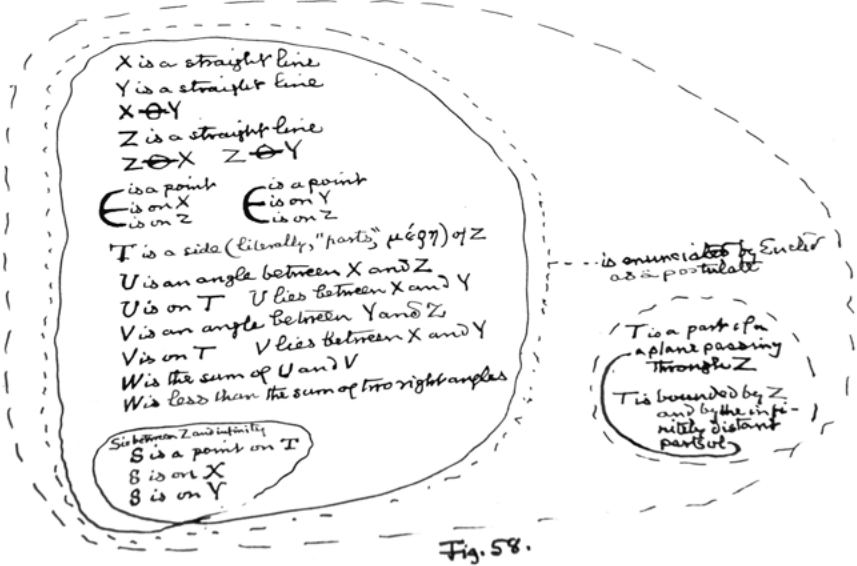 X is a straight line
Y is a straight line
X Y
Z is a straight line
Z X Z Y
is a point is a point
is on X is on Y
is on Z is on Z
T is a side (literally, "parts," μέρη) of Z
U is an angle between X and Z
U is on T U lies between X and Y
V is an angle between Y and Z
V is on T V lies between X and Y
W is the sum of U and V
W is less than the sum of two right angles
S is between Z and infinity
S is a point on T
S is on X
S is on Y
is enunciated by Euclid
as a postulate
T is a part of
a plane passing
through Z
T is bounded by Z
and by the infi-
nitely distant
parts of
Fig. 58.